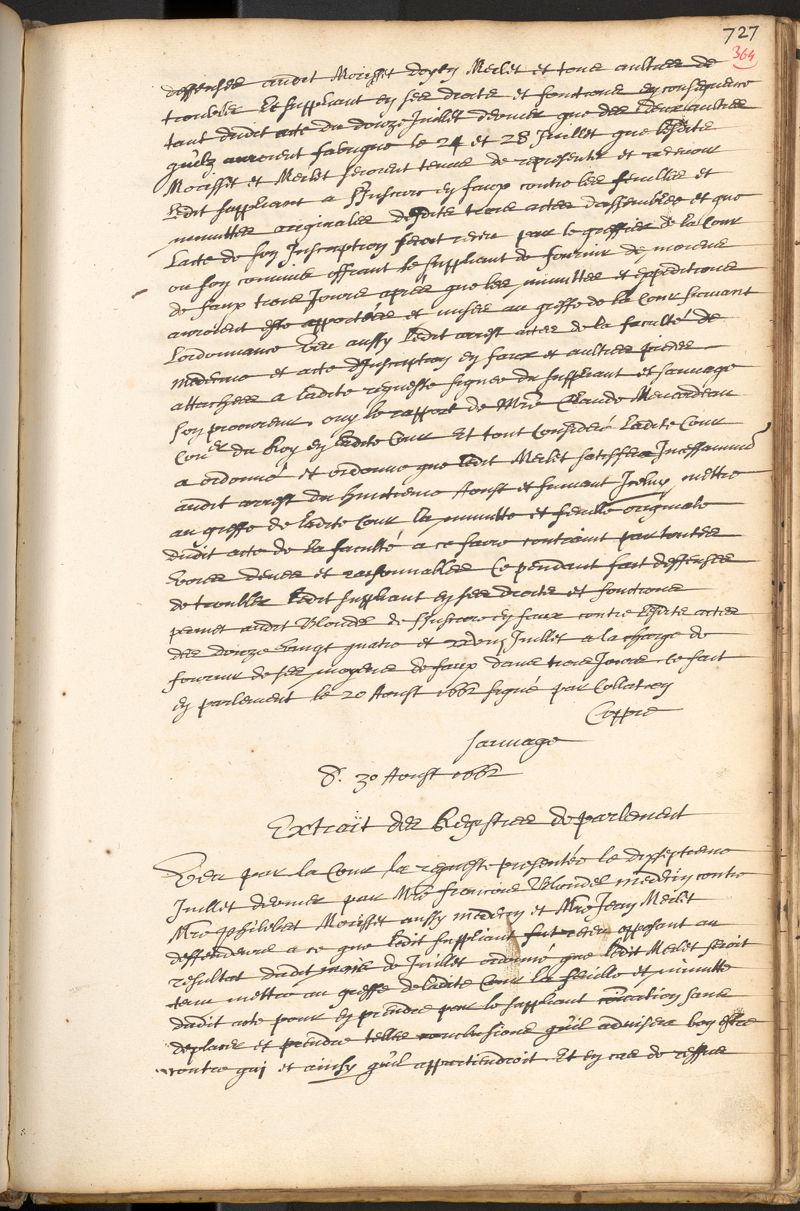 727
364
deffenses audit Morisset doyen Merlet et tous aultres de
troubler le suppliant en ses droits et fonctions en consequence
tant dudit acte du douze Juillet dernier que des deux aultres
qu'ilz auroient fabriqué le 24 et 28 Juillet que lesdits
Morisset et Merlet seroient tenus de representer et recevoir
ledit suppliant a s'Inscrire en faux contre les feuilles et
minuttes originales desdits trois actes d'assemblée et que
l'acte de son Inscription seroit receu par le greffier de la Cour
ou son commis offrant le suppliant de fournir de moiens
de faux trois Jours apres que les minuttes et expeditions
auroient esté apportées et mises au greffe de la Cour suivant
l'ordonnance Veu aussy ledit arrest actes de la faculté de
medecine et acte d'Inscription en faux et aultres pieces
attachées a ladite requeste signée du suppliant et sauvage
son procureur, ouy le rapport de Mre Claude Menardeau
Coner du Roy en ladite Cour Et tout Consideré Ladite Cour
a ordonné et ordonne que ledit Merlet satisfera Incessamment
audit arrest du huitieme Aoust et suivant Iceluy mettre
au greffe de ladite Cour la minutte et feuille originale
dudit acte de la faculté a ce faire contraint par toutes
voies deues et raisonnables Cependant fait deffenses
de troubler ledit suppliant en ses droits et fonctions
permet audit Blondel de s'Inscrire en faux contre lesdits actes
des douze vingt quatre et Juillet a la charge de
fournir de ses moyens de faux dans trois Jours, Ce fait
en parlement le 20 Aoust 1662 signé par Collation
Coppie
sauvage
d. 30 Aoust 1662
Extrait des Registres de parlement
Veu par la Cour la requeste presentée le dixseptieme
Juillet dernier par Mre francois Blondel medecin contre
Mre philibert Morisset aussy medecin et Mre Jean Merlet
deffendeurs a ce que ledit suppliant fut receu opposant au
resultat dudit mois de Juillet ordonné que ledit Merlet seroit
tenu mettre au greffe de ladite Cour la feuille et minutte
dudit acte pour en prendre par le suppliant coication sans
deplacer et prendre telles conclusions qu'il advisera bon estre
contre qui et ainsy qu'il appartiendroit Et en cas de reffus